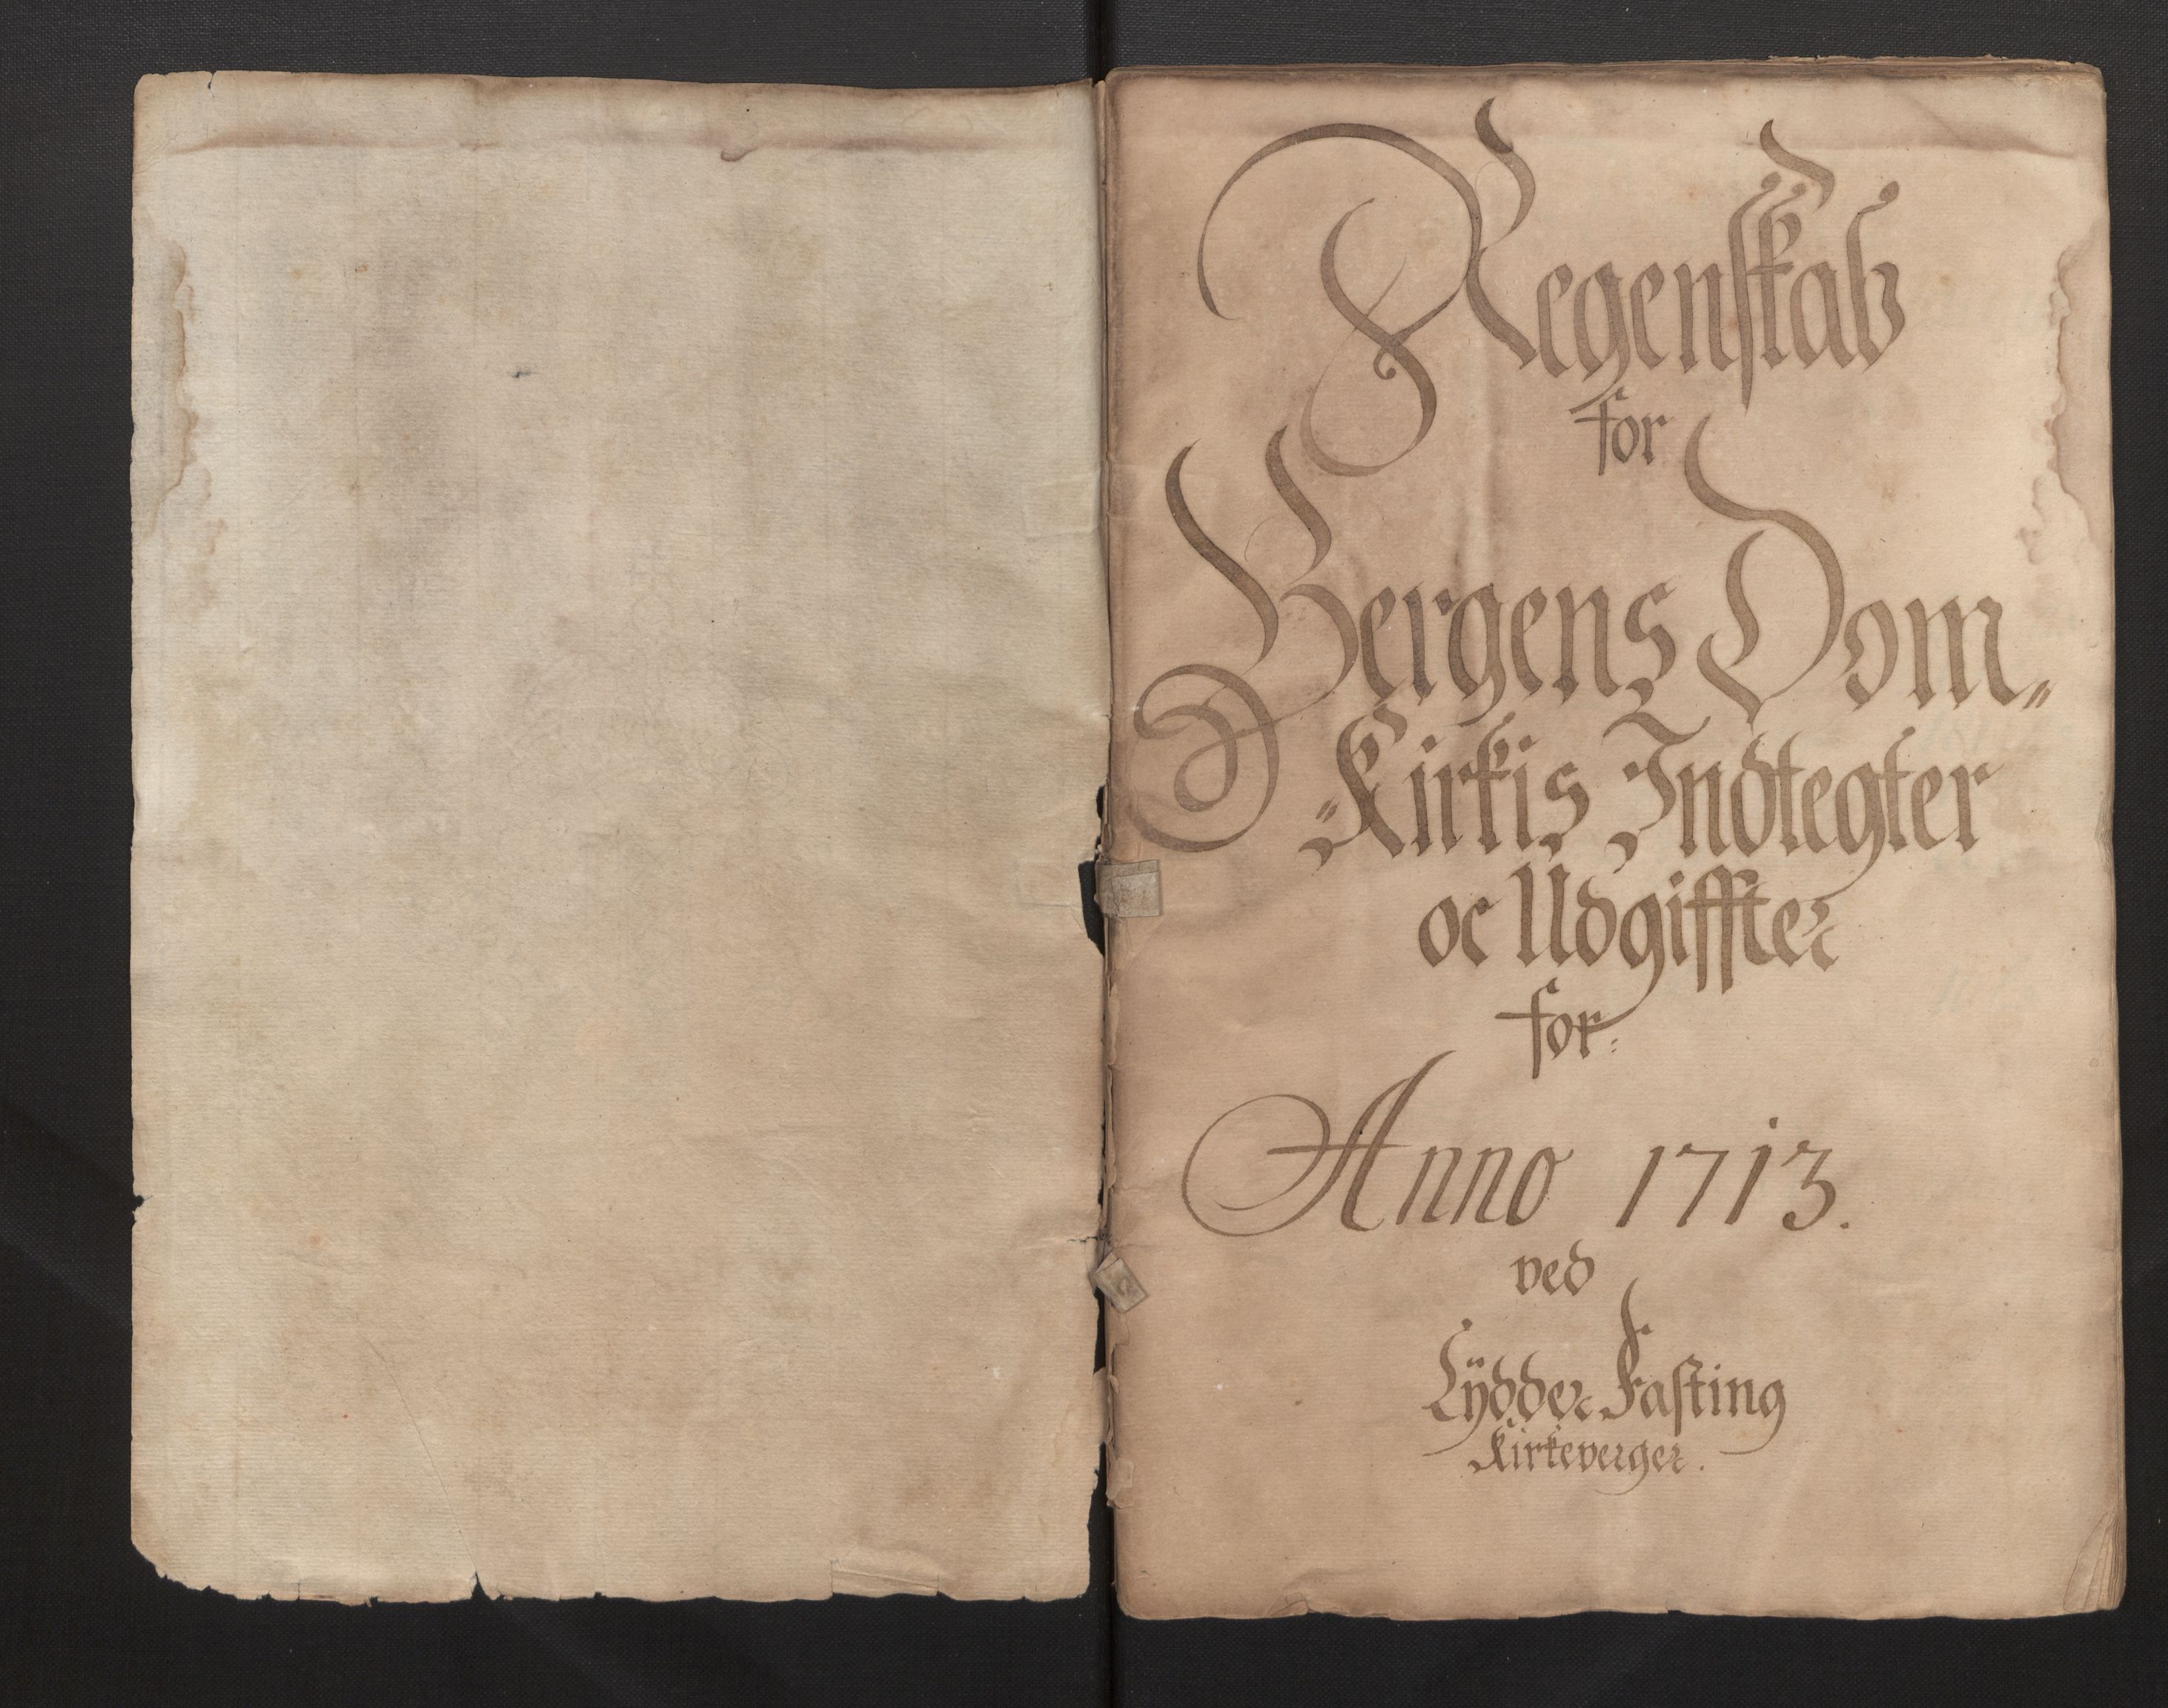 Regenskab
for
Bergens Dom„
„Kirkis Indtegter
oc Udgiffter
for:
Anno 1713.
ved
Lÿdder Fasting
Kirkeverger.